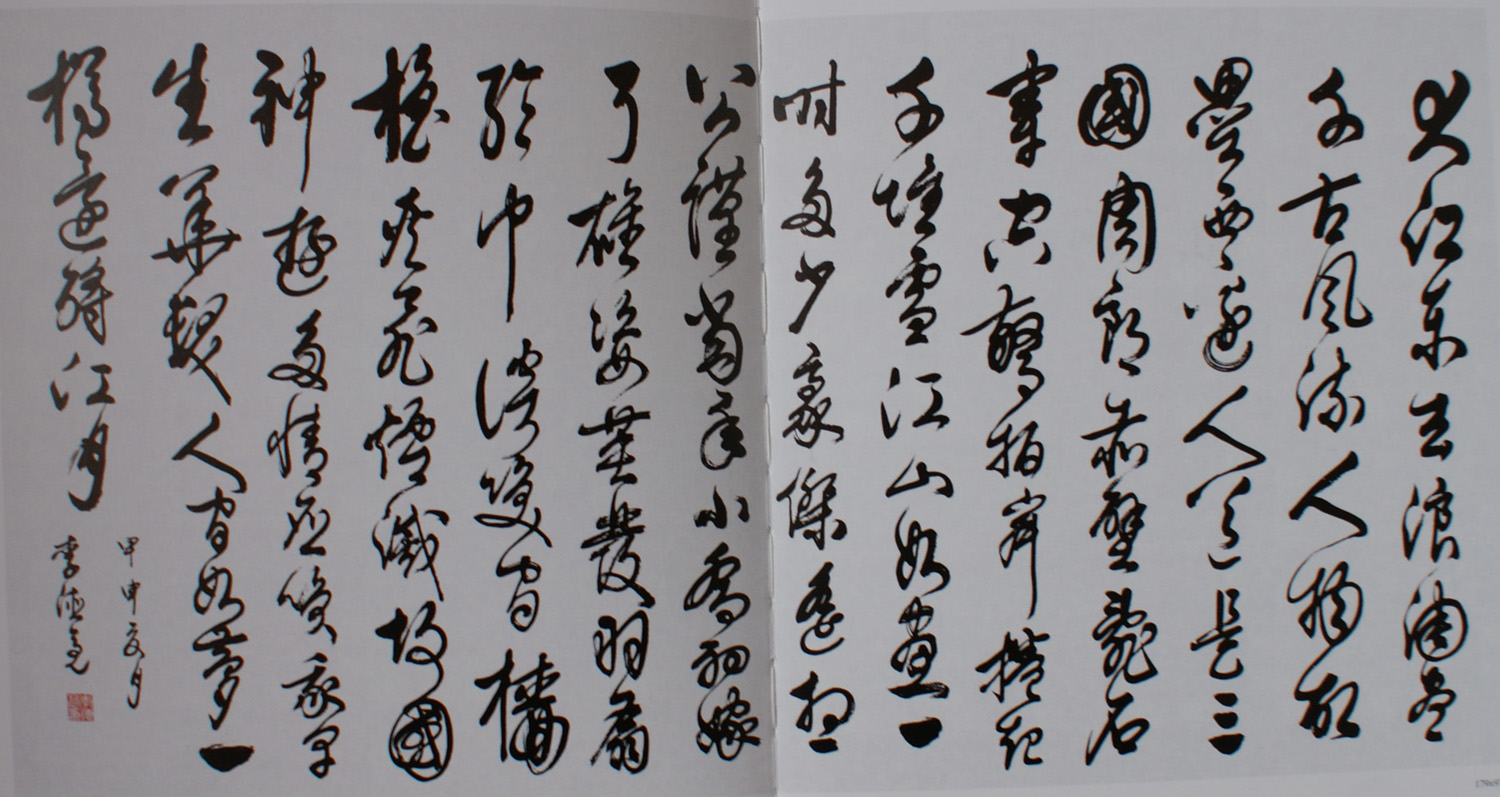 大江東去浪淘盡
千古風流人物故
壘西邊人道是三
國周郎赤壁亂石
穿空驚拍岸捲起
千堆雪江山如畫一
時多少豪傑遙想
公瑾當年小喬初嫁
了雄姿英發羽扇
綸巾談笑間檣
櫓灰飛煙滅故國
神遊多情應笑我早
生華髮人間如夢一
樽還酹江月
甲申夏月
李德